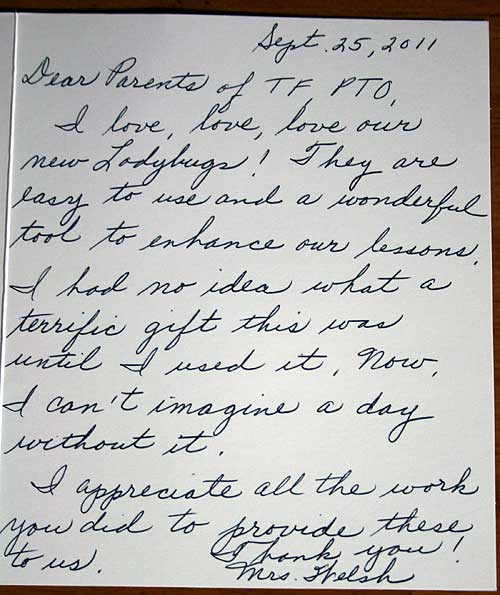 Sept. 25, 2011
Dear Parents of TF PTO,
I love, love, love our
new Ladybugs! They are
easy to use and a wonderful
tool to enhance our lessons.
I had no idea what a
terrific gift this was
until I used it. Now,
I can't imagine a day
without it.
I appreciate all the work
you did to provide these
to us.
Thank you!
Mrs. Welsh